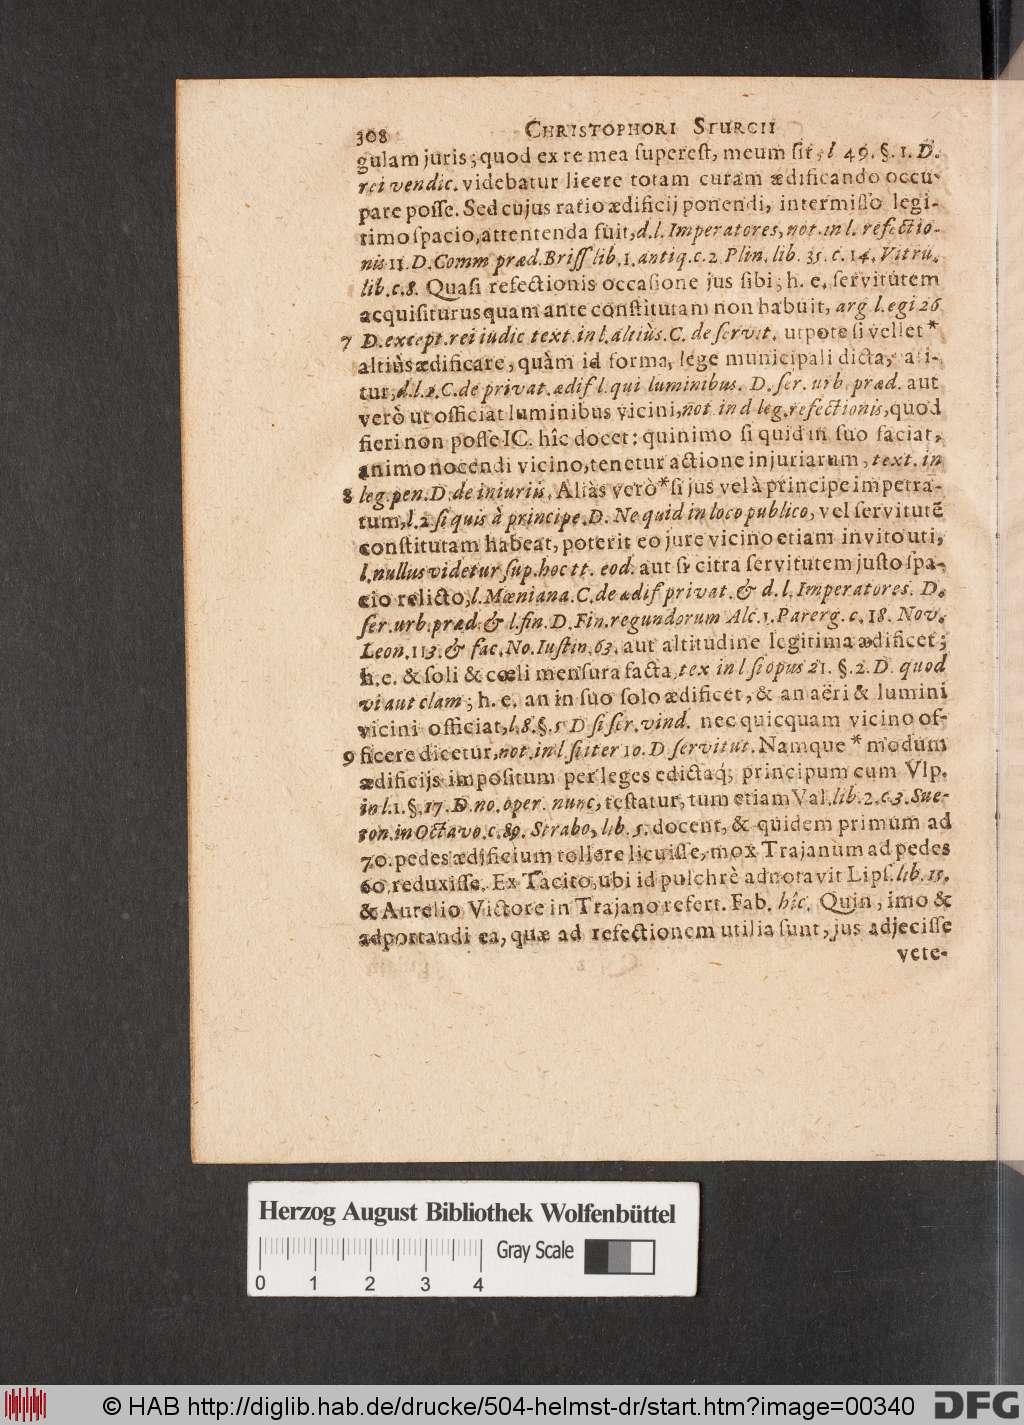 308 CHRISTOPHORI STURCII
gulam juris; quod ex re mea superest, meum sit, l 49. §. 1. D.
rei vendic. videbatur licere totam curam ædificando occu-
pare posse. Sed cujus ratio ædificij ponendi, intermisso legi-
timo spacio, attentenda fuit, d. l. Imperatores, not. in l. refectio-
nis 11. D. Comm præd. Briss lib. 1. antiq. c. 2 Plin. lib. 35. c. 14. Vitru.
lib. c. 8. Quasi refectionis occasione jus sibi; h. e. servitutem
acquisiturus quam ante constitutam non habuit, arg l. egi 26
7 D. except. rei iudic text. in l. altiùs. C. de servit. utpote si vellet *
altiùs ædificare, quàm id forma, lege municipali dicta, ali-
tur, d. l. 1. C. de privat. ædif l. qui luminibus. D. ser. urb. præd. aut
verò ut officiat luminibus vicini, not. in d leg. refectionis, quod
fieri non posse IC. hîc docet: quinimo si quid in suo faciat,
animo nocendi vicino, tenetur actione injuriarum, text. in
8 leg. pen. D. de iniuriis. Aliàs verò * si jus vel à principe impetra-
tum, l. 2 si quis à principe. D. Ne quid in loco publico, vel servitutẽ
constitutam habeat, poterit eo jure vicino etiam invito uti,
l. nullus videtur sup. hoc tt. eod. aut si citra servitutem justo spa-
cio relicto, l. Mæniana. C. de ædif privat. & d. l. Imperatores. D.
ser. urb. præd. & l. fin. D. Fin. regundorum Alc. 1. Parerg. c. 18. Nov.
Leon. 113. & fac. No. Iustin. 63. aut altitudine legitima ædificet;
h. e. & soli & cœli mensura facta, tex in l si opus 21. §. 2. D. quod
vi aut clam; h. e. an in suo solo ædificet, & an aëri & lumini
vicini officiat, l. 8. §. 5 D si ser. vind. nec quicquam vicino of-
9 ficere dicetur, not. in l si iter 10. D servitut. Namque * modum
ædificijs impositum per leges edictaq; principum cum Vlp.
in l. 1. §. 17. D. no. oper. nunc, testatur, tum etiam Val. lib. 2. c. 3. Sue-
ton. in Octavo. c. 89. Strabo, lib. 5. docent, & quidem primum ad
70. pedes ædificium tollere licuisse, mox Trajanum ad pedes
60. reduxisse. Ex Tacito, ubi id pulchrè adnotavit Lips. lib. 15.
& Aurelio Victore in Trajano refert. Fab. hîc. Quin, imo &
adportandi ea, quæ ad refectionem utilia sunt, jus adjecisse
vete-
Herzog August Bibliothek Wolfenbüttel
Gray Scale
0 1 2 3 4
© HAB http://diglib.hab.de/drucke/504-helmst-dr/start.htm?image=00340
DFG